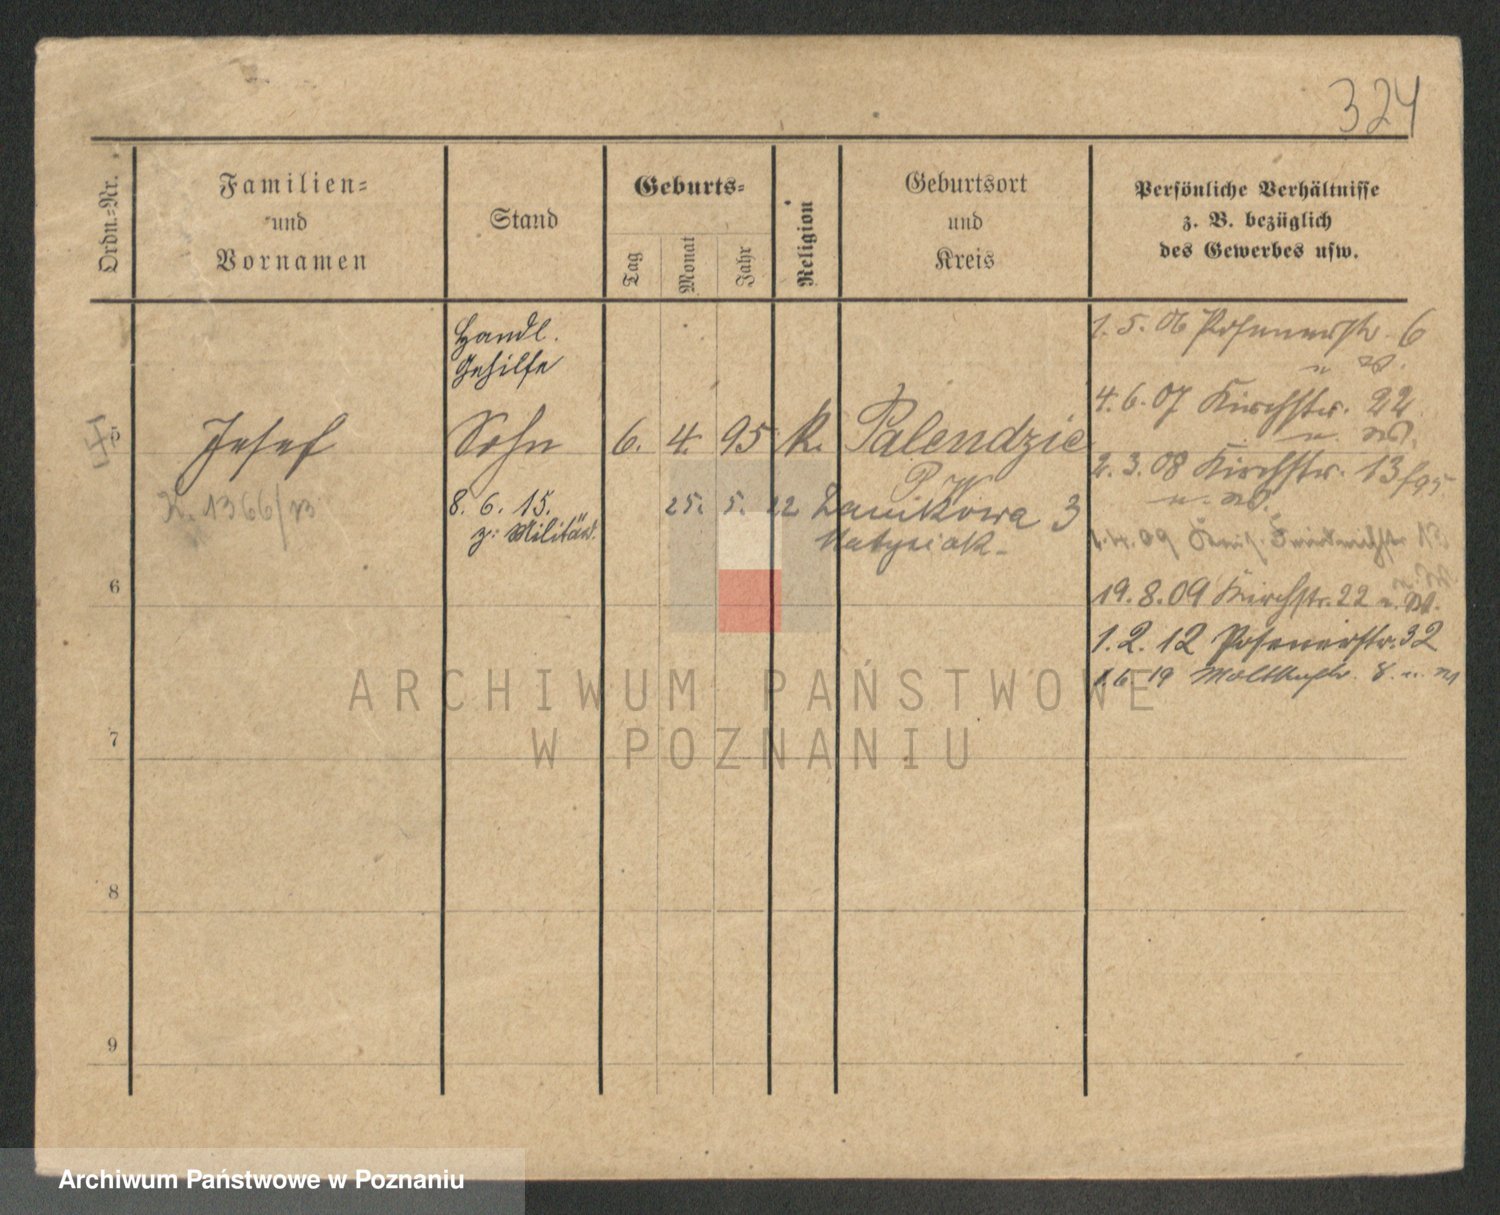 324
Ordn.-Nr.
Familien-
und
Vornamen
Stand
Geburts-
Tag
Monat
Jahr
Religion
Geburtsort
und
Kreis
Persönliche Verhältnisse
z. B. bezüglich
des Gewerbes usw.
Handl.
Gehilfe
5
Josef
Sohn
6. 4. 95
K.
Palendzie
P. W.
K. 1366/
8. 6. 15.
z. Militär.
25. 5. 22
Zanikowa 3
Matysiak.
1. 5. 06 Posenerstr. 6
u. W.
4. 6. 07 Kirchstr. 22
u. W.
2. 3. 08 Kirchstr. 13
u. W.
1. 4. 09
19. 8. 09 Kirchstr. 22 u. W.
1. 2. 12 Posenerstr. 32
19 Moltkestr. 8
6
7
8
9
ARCHIWUM PAŃSTWOWE
W POZNANIU
Archiwum Państwowe w Poznaniu